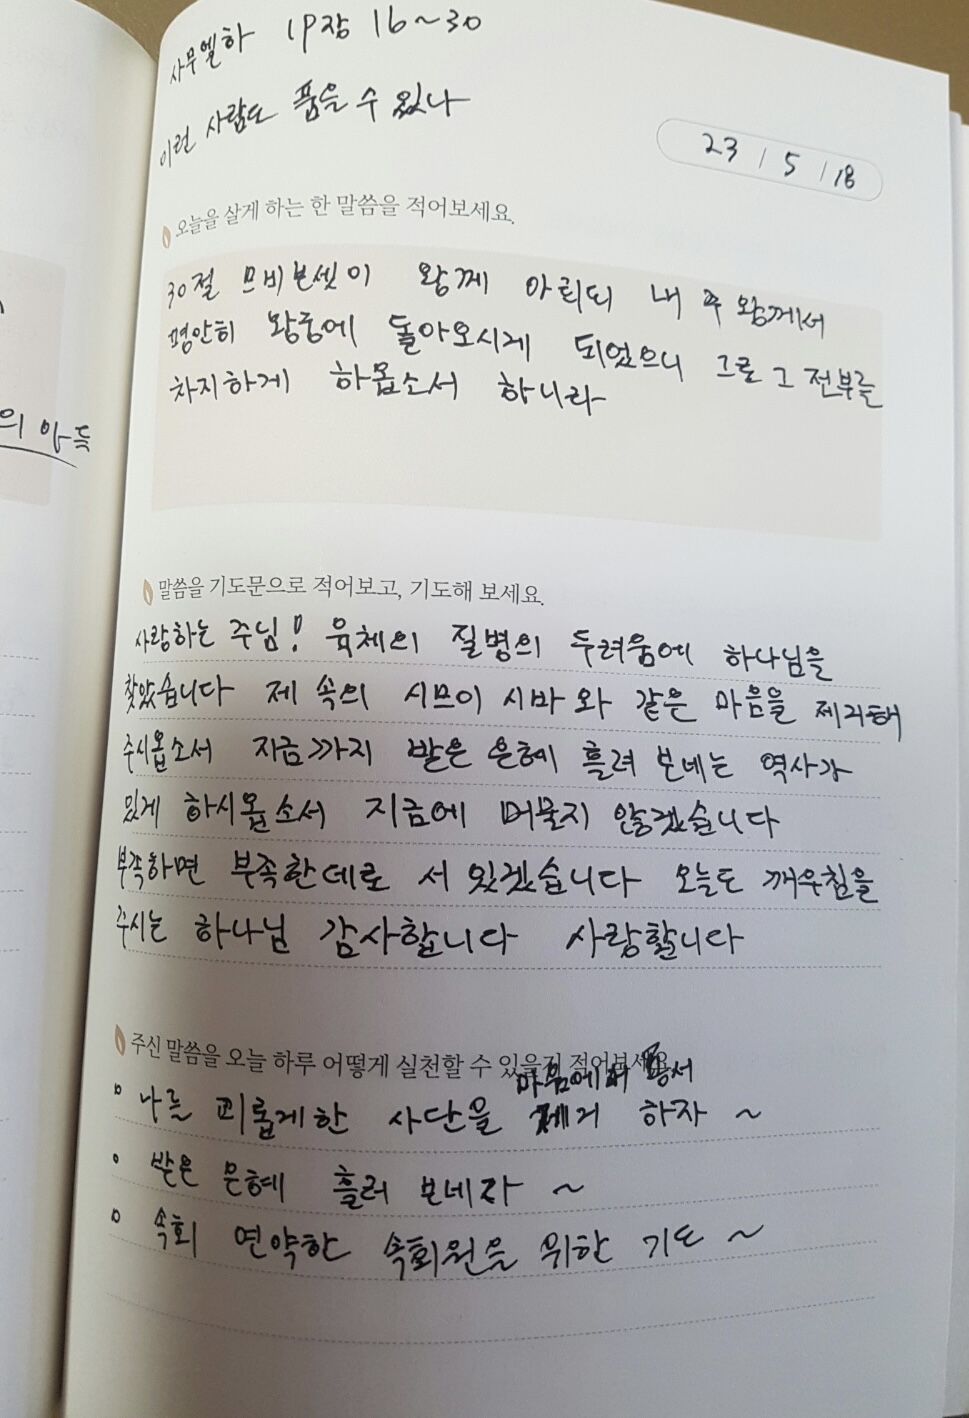 사무엘하 19장 16~30
이런 사람도 품을 수 있나
23 / 5 / 18
오늘을 살게 하는 한 말씀을 적어보세요.
30절 므비보셋이 왕께 아뢰되 내 주 왕께서
평안히 왕궁에 돌아오시게 되었으니 그로 그 전부를
차지하게 하옵소서 하니라
의 아들
말씀을 기도문으로 적어보고, 기도해 보세요.
사랑하는 주님! 육체의 질병의 두려움에 하나님을
찾았습니다 제 속의 시므이 시바와 같은 마음을 제거해
주시옵소서 지금까지 받은 은혜 흘려 보네는 역사가
있게 하시옵소서 지금에 머물지 않겠습니다
부족하면 부족한데로 서 있겠습니다 오늘도 깨우침을
주시는 하나님 감사합니다 사랑합니다
주신 말씀을 오늘 하루 어떻게 실천할 수 있을지 적어보세요
마음에서 용서
나를 괴롭게한 사단을 제거 하자 ~
받은 은혜 흘러 보네자 ~
속회 연약한 속회원을 위한 기도 ~